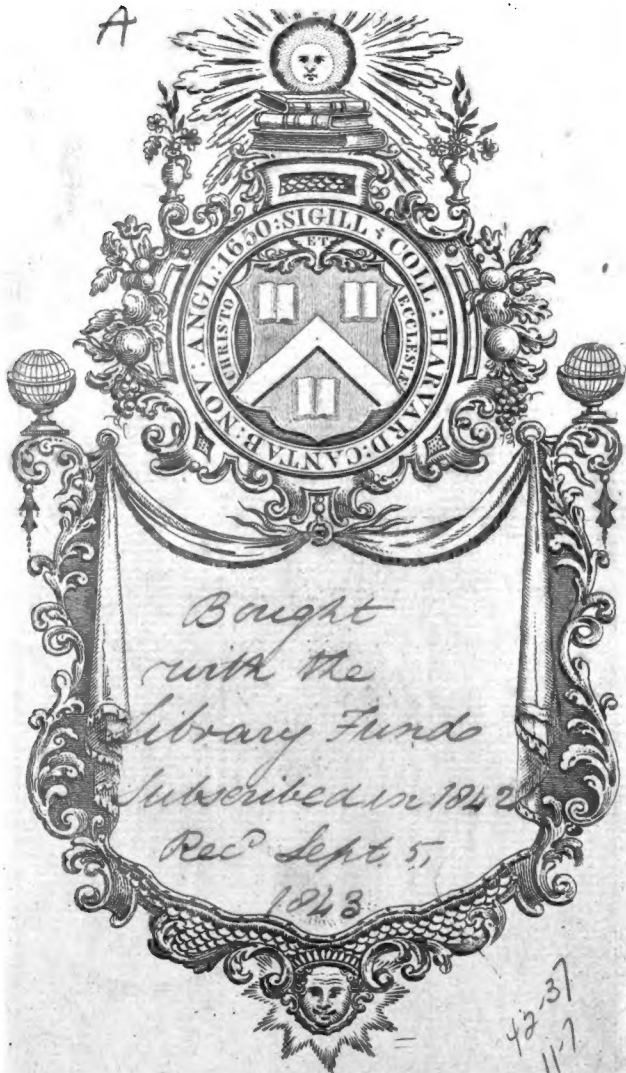 A
SIGILL : COLL : HARVARD : CANTAB : NOV : ANGL : 1650 :
ET
CHRISTO
ECCLESIÆ
Bought
with the
Library Fund
Subscribed in 1842
Rec'd Sept. 5,
1843
42-37
11-7